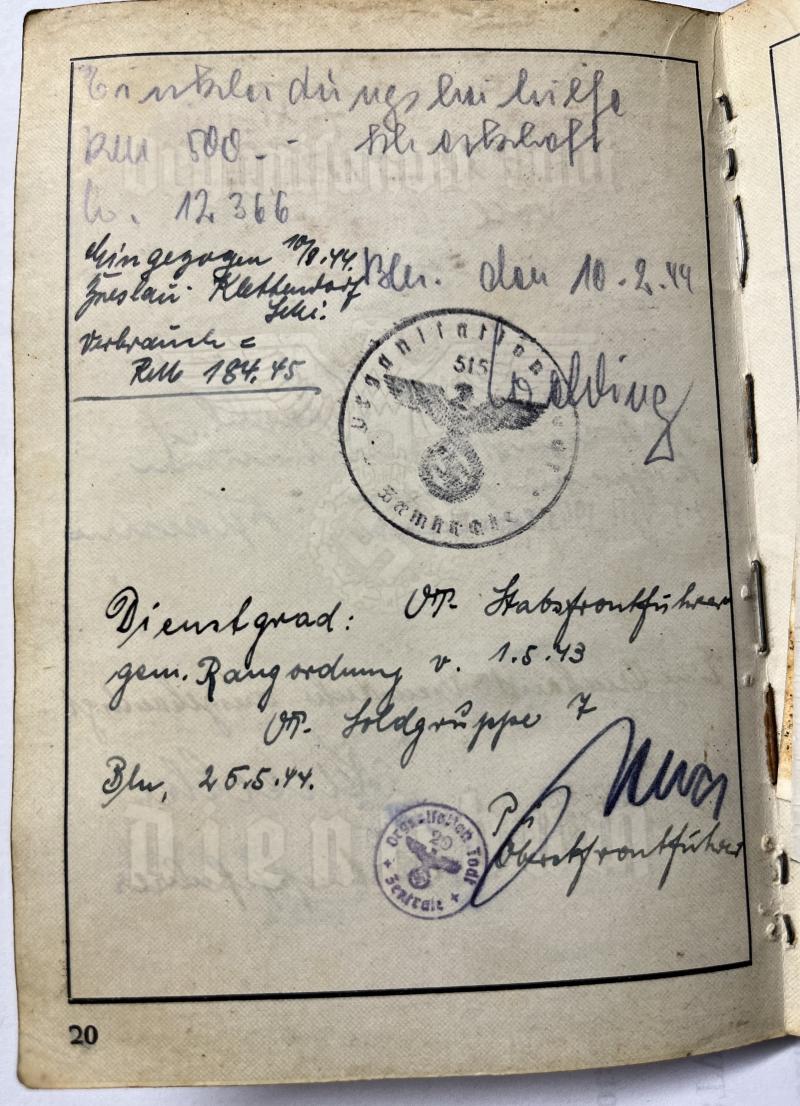 Einkleidungsbeihilfe
RM 500.-
12366
Bln. den 10.2.44
eingezogen 10/8.44.
Breslau-Klettendorf
Verbrauch =
RM 184.45
Organisation
515
Zentrale
Dienstgrad: OT. Stabsfrontführer
gem. Rangordnung v. 1.5.43
OT. Soldgruppe 7
Bln, 25.5.44.
Organisation Todt
20
Zentrale
Oberstfrontführer
20